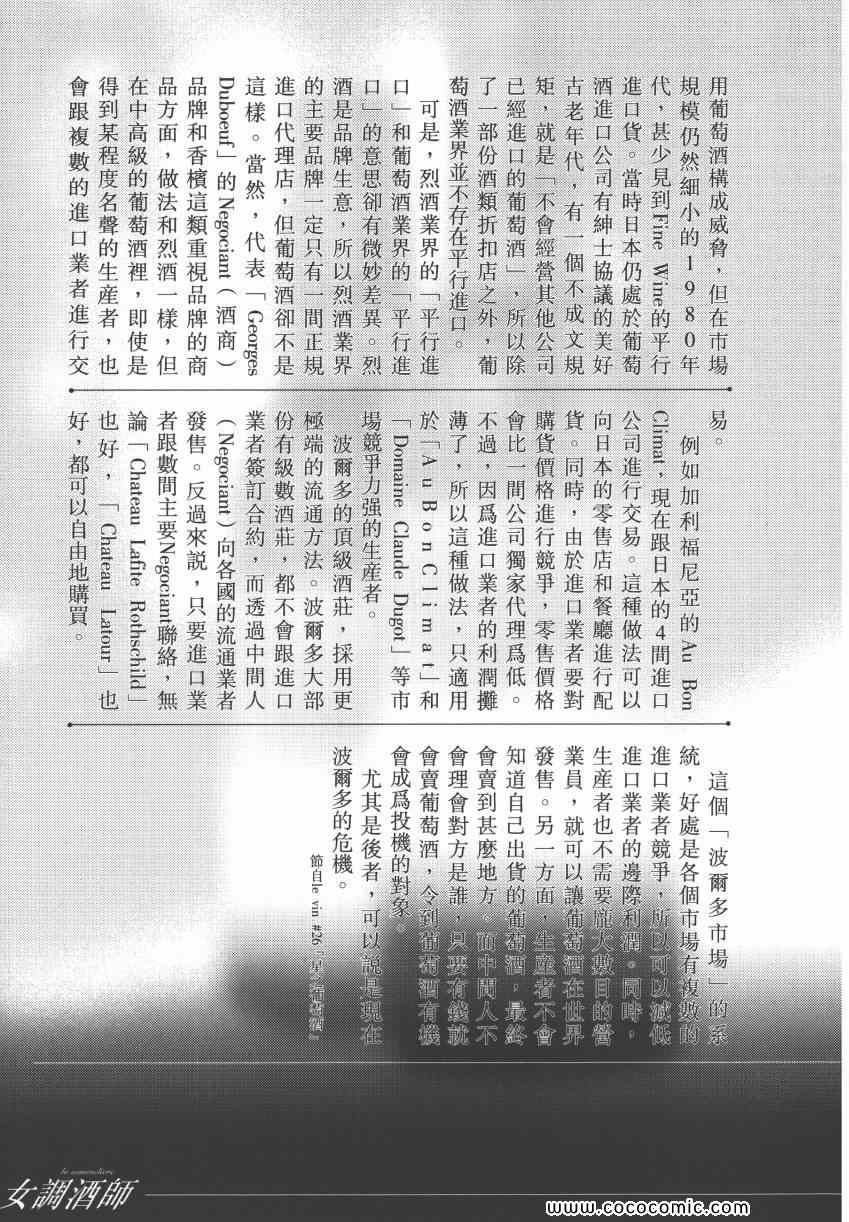 用葡萄酒構成威脅，但在市場
規模仍然細小的１９８０年
代，甚少見到Fine Wine的平行
進口貨。當時日本仍處於葡萄
酒進口公司有紳士協議的美好
古老年代，有一個不成文規
矩，就是「不會經營其他公司
已經進口的葡萄酒」，所以除
了一部份酒類折扣店之外，葡
萄酒業界並不存在平行進口。
可是，烈酒業界的「平行進
口」和葡萄酒業界的「平行進
口」的意思卻有微妙差異。烈
酒是品牌生意，所以烈酒業界
的主要品牌一定只有一間正規
進口代理店，但葡萄酒卻不是
這樣。當然，代表「Georges
Duboeuf」的Negociant（酒商）
品牌和香檳這類重視品牌的商
品方面，做法和烈酒一樣，但
在中高級的葡萄酒裡，即使是
得到某程度名聲的生産者，也
會跟複數的進口業者進行交
易。
例如加利福尼亞的Au Bon
Climat，現在跟日本的4間進口
公司進行交易。這種做法可以
向日本的零售店和餐廳進行配
貨。同時，由於進口業者要對
購貨價格進行競爭，零售價格
會比一間公司獨家代理爲低。
不過，因爲進口業者的利潤攤
薄了，所以這種做法，只適用
於「Au Bon Climat」和
「Domaine Claude Dugot」等市
場競爭力强的生産者。
波爾多的頂級酒莊，採用更
極端的流通方法。波爾多大部
份有級數酒莊，都不會跟進口
業者簽訂合約，而透過中間人
（Negociant）向各國的流通業者
發售。反過來説，只要進口業
者跟數間主要Negociant聯絡，無
論「Chateau Lafite Rothschild」
也好，「Chateau Latour」也
好，都可以自由地購買。
這個「波爾多市場」的系
統，好處是各個市場有複數的
進口業者競爭，所以可以減低
進口業者的邊際利潤。同時，
生産者也不需要龐大數目的營
業員，就可以讓葡萄酒在世界
發售。另一方面，生産者不會
知道自己出貨的葡萄酒，最終
會賣到甚麼地方。而中間人不
會理會對方是誰，只要有錢就
會賣葡萄酒，令到葡萄酒有機
會成爲投機的對象。
尤其是後者，可以說是現在
波爾多的危機。
節自le vin #26「星之葡萄酒」
la sommelière
女調酒師
www.cococomic.com